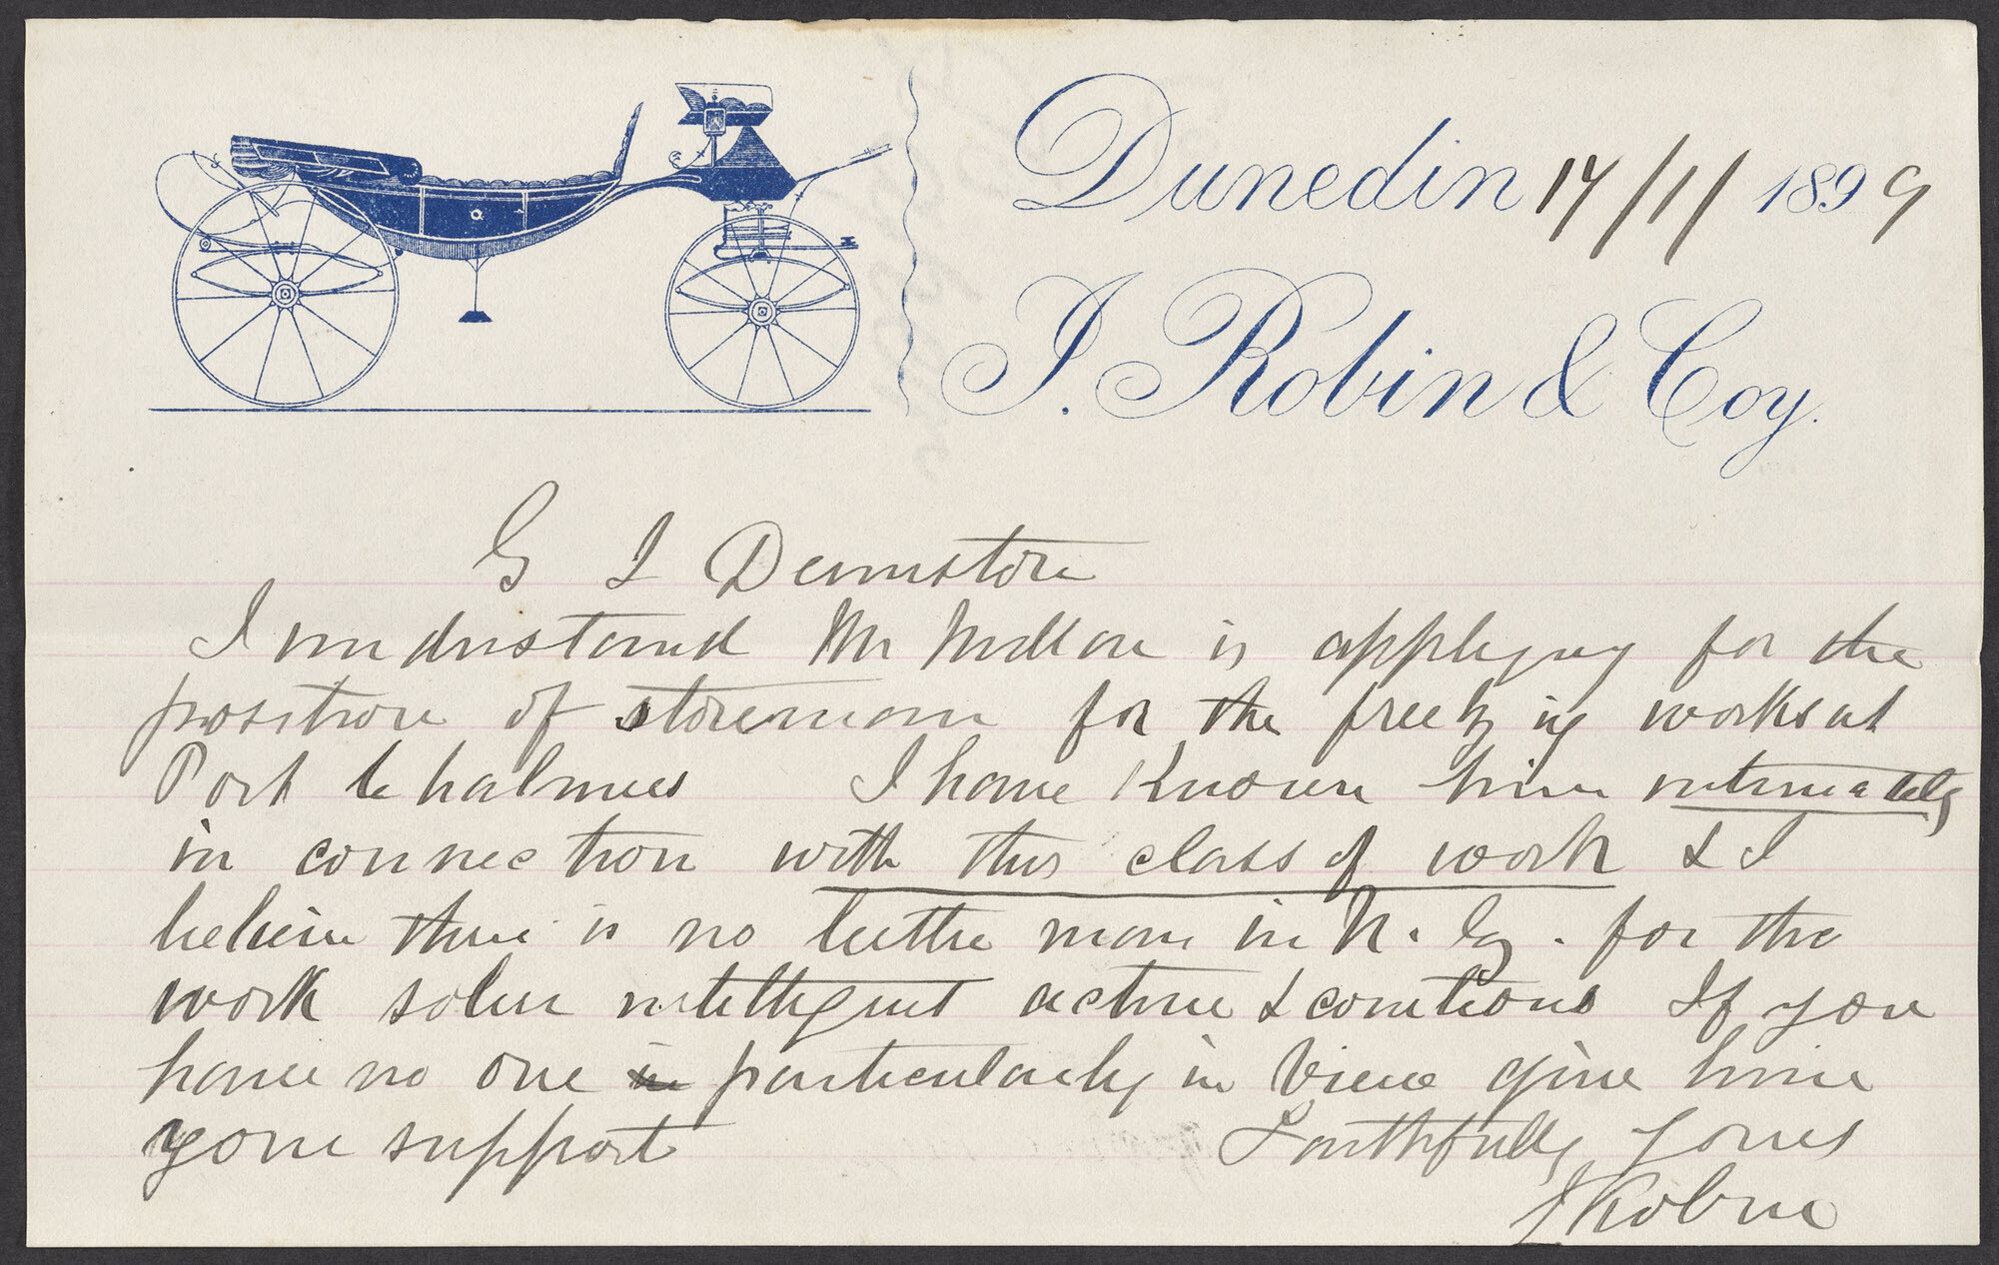 Dunedin 17/11/1899
J. Robin & Coy.
G L Denniston
I understand Mr is applying for the
position of storeman for the freezing works at
Port Chalmers I have known him intimately
in connection with this class of work & I
believe there is no better man in N. Z. for the
work sober intelligent active & cautious If you
have no one in particularly in view give him
your support Faithfully yours
J Robin